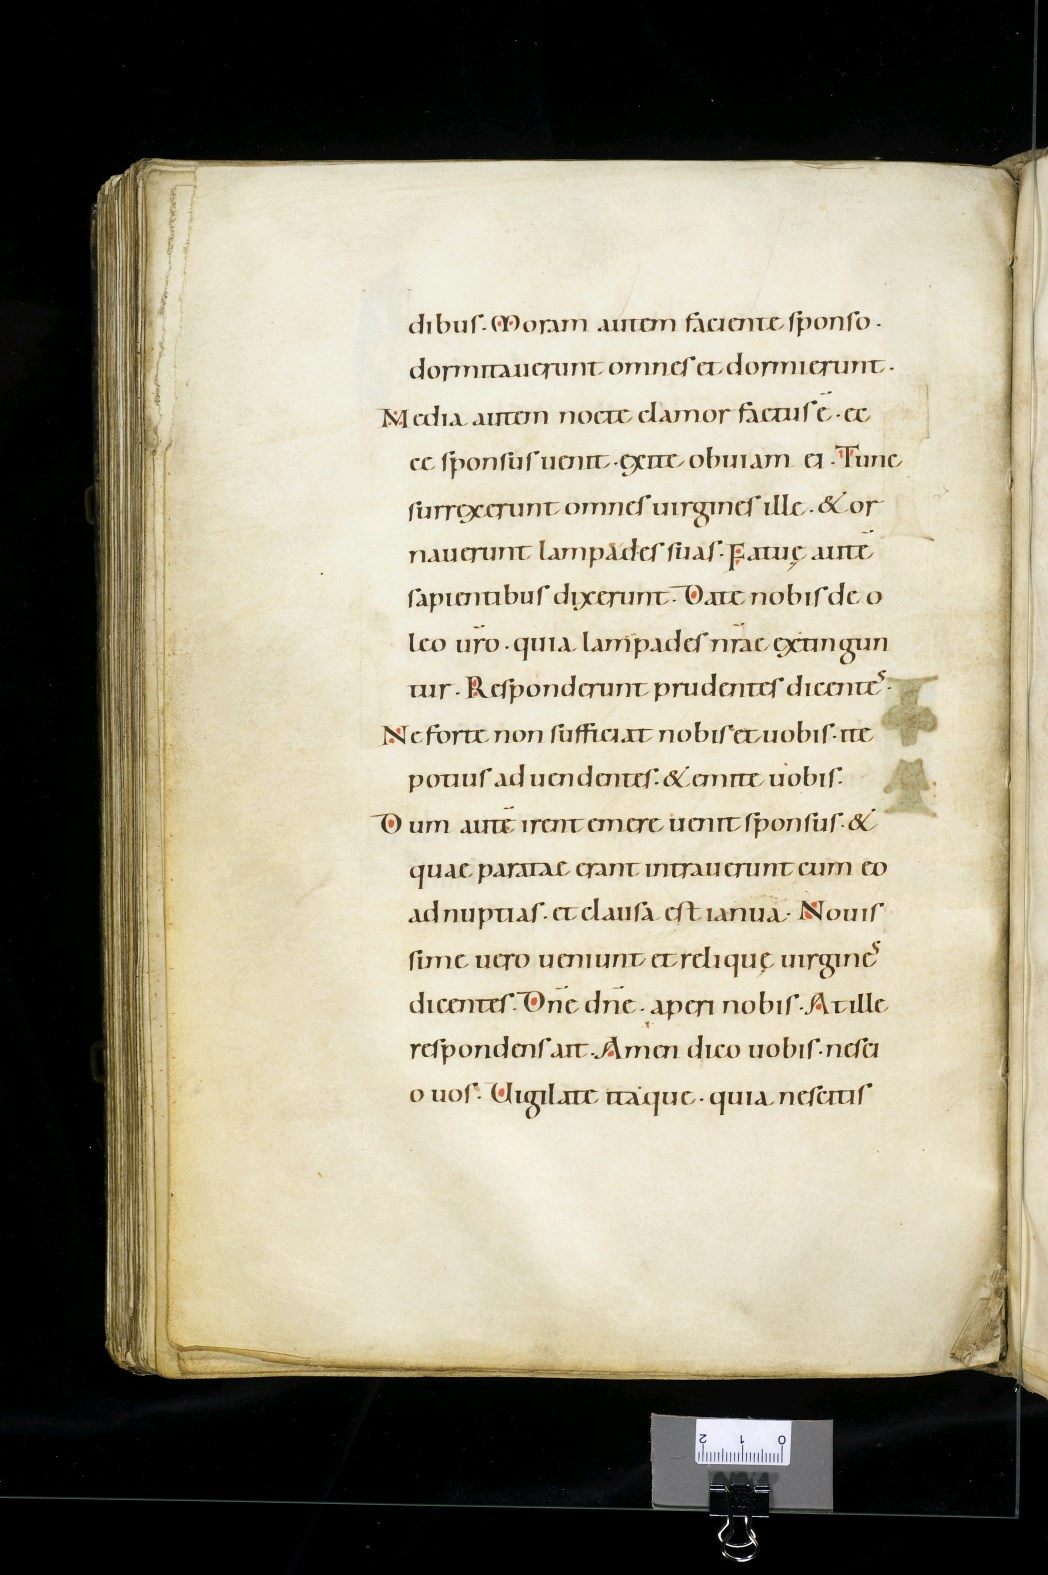 dibus. Moram autem faciente sponso.
dormitauerunt omnes et dormierunt.
Media autem nocte clamor factus ē. ec
ce sponsus uenit. exite obuiam ei. Tunc
surrexerunt omnes uirgines ille. & or
nauerunt lampades suas. Fatuę autē
sapientibus dixerunt. Date nobis de o
leo ur̄o. quia lampades nr̄ae extingun
tur. Responderunt prudentes dicentes.
Ne forte non sufficiat nobis et uobis. ite
potius ad uendentes. & emite uobis.
Dum autē irent emere uenit sponsus. &
quae paratae erant intrauerunt cum eo
ad nuptias. et clausa est ianua. Nouis
sime uero ueniunt et reliquę uirgines
dicentes. Dn̄e dn̄e. aperi nobis. At ille
respondens ait. Amen dico uobis. nesci
o uos. Uigilate itaque. quia nescitis
2 1 0